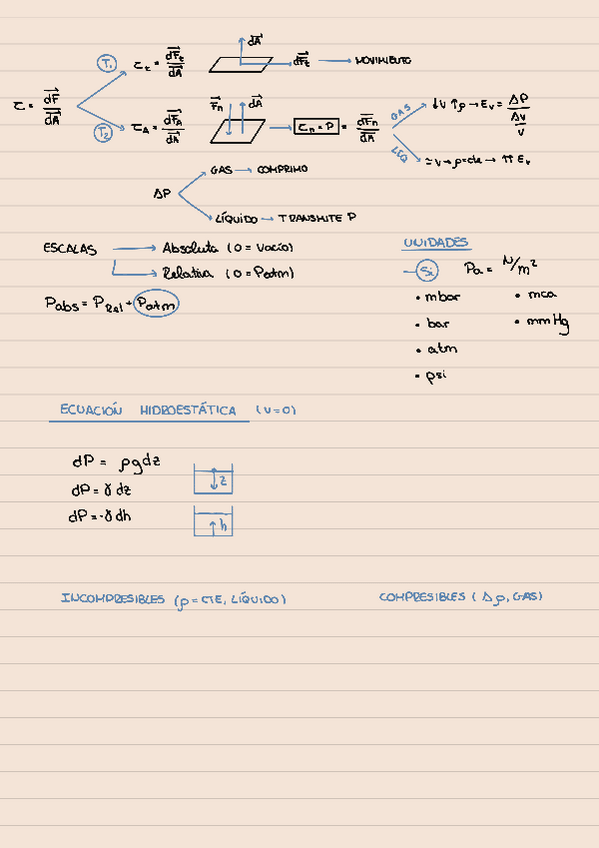 τ = dF/dA
T₁ τt = dFt/dA dA dFt → MOVIMIENTO
T₂ τA = dFA/dA Fn dA → τn = P = dFn/dA
GAS ↓V ↑ρ → Ev = ΔP / (ΔV/V)
LÍQ ≃V → ρ=cte → ↑↑ Ev
ΔP
GAS → COMPRIMO
LÍQUIDO → TRANSMITE P
ESCALAS → Absoluta (0 = Vacío)
→ Relativa (0 = Patm)
Pabs = PRel + Patm
UNIDADES
Si Pa = N/m²
• mbar • mca
• bar • mmHg
• atm
• psi
ECUACIÓN HIDROESTÁTICA (v=0)
dP = ρgdz
dP = γ dz z
dP = -γ dh h
INCOMPRESIBLES (ρ = CTE, LÍQUIDO) COMPRESIBLES (Δρ, GAS)